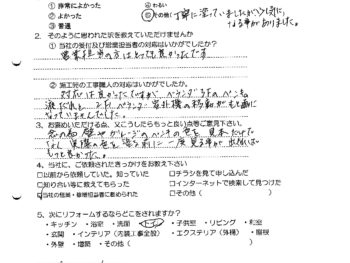 ① 非常によかった ④ わるい
② よかった ⑤ その他( 丁寧に塗っていましたが
③ 普通 なる事がありました。
2. そのように思われた訳を教えていただけませんか
① 当社の受付及び営業担当者の対応はいかがでしたか?
営業担当の方はとても良かったです
② 施工別の工事職人の対応はいかがでしたか?
対応は良かったですが ベランダ
ベランダ 室外機の移動が
なっていませんでした。
3. お褒めいただける点、又こうしたらもっと良い点等ご意見下さい。
壁やガレージの 色を 見本だけ
実際の色を 塗る前に 一度見る事が 出来れば
もっと良かった。
4. 当社に、ご依頼されたきっかけをお教え下さい
□以前から依頼していた。知っていた □チラシを見て申し込んだ
□知り合い等に教えてもらった □インターネットで検索して見つけた
□当社の営業・修繕担当者に勧められた □その他(
5. 次にリフォームするならどこをされますか?
・キッチン ・浴室 ・洗面 ・トイレ ・子供室 ・リビング ・和室
・玄関 ・インテリア(内装工事全般) ・エクステリア(外構) ・屋根
・外壁 ・増築 ・その他(